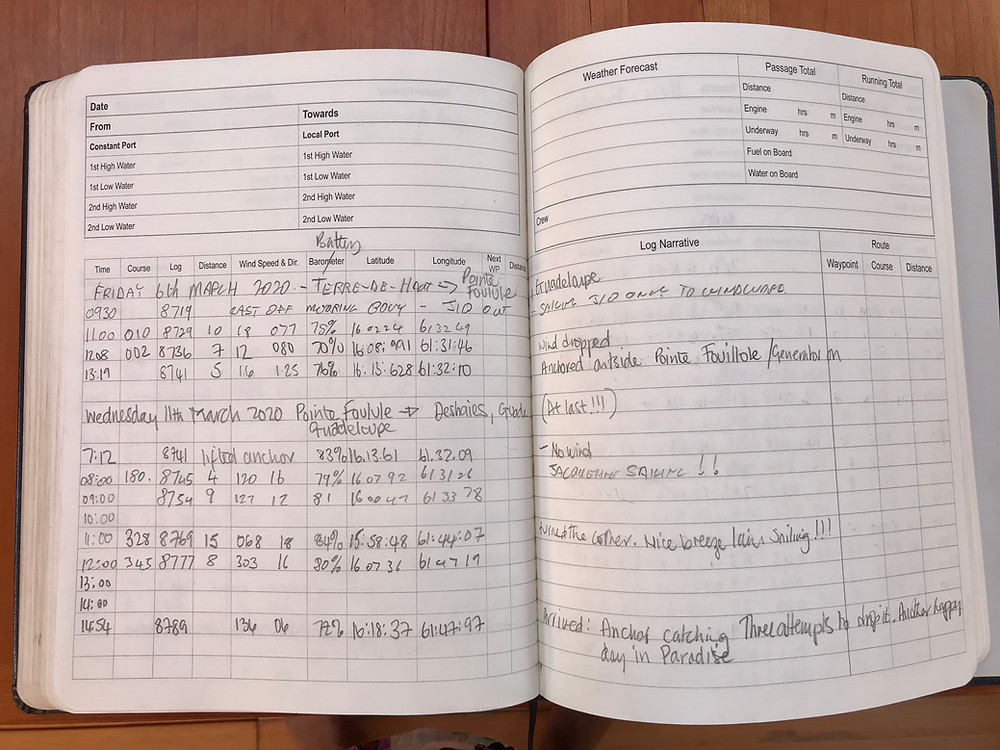 Date
From Towards
Constant Port Local Port
1st High Water 1st High Water
1st Low Water 1st Low Water
2nd High Water 2nd High Water
2nd Low Water 2nd Low Water
Battery
Time Course Log Distance Wind Speed & Dir. Barometer Latitude Longitude Next WP Distance
FRIDAY 6th MARCH 2020 - TERRE-DE-HAUT -> Pointe Foulule
0930 8719 CAST OFF MOORING BOUY - JIB OUT
11.00 010 8729 10 18 077 75% 16 0224 61 32 49
1208 002 8736 7 12 080 70% 16:08:991 61:31:46
13:19 8741 5 16 125 76% 16:13:628 61:32:10
Wednesday 11th March 2020 Pointe Foulule -> Deshaies, Guade
Guadeloupe
7:12 8741 lifted anchor 83% 16.13.61 61.32.09
08:00 180. 8745 4 120 16 79% 16 07 92 61 31 26
09:00 8754 9 127 12 81 16 00 47 61 33 78
10:00
11:00 328 8769 15 068 18 84% 15:58:48 61:44:07
12:00 345 8777 8 303 16 80% 16 07 36 61 47 19
13:00
14:00
1454 8789 136 06 72% 16:18:37 61:47:97
Weather Forecast Passage Total Running Total
Distance Distance
Engine hrs m Engine hrs m
Underway hrs m Underway hrs m
Fuel on Board
Water on Board
Crew
Log Narrative Route
Waypoint Course Distance
Guadeloupe
- SAILING JIB ONLY TO WINDWARD
wind dropped
Anchored outside Pointe Fouillole / Generator on
(At last!!!)
- No wind
SAILING !!
turned the corner. Nice breeze Iain Sailing!!!
Arrived: Anchor catching Three attempts to drop it. Another happy
day in Paradise